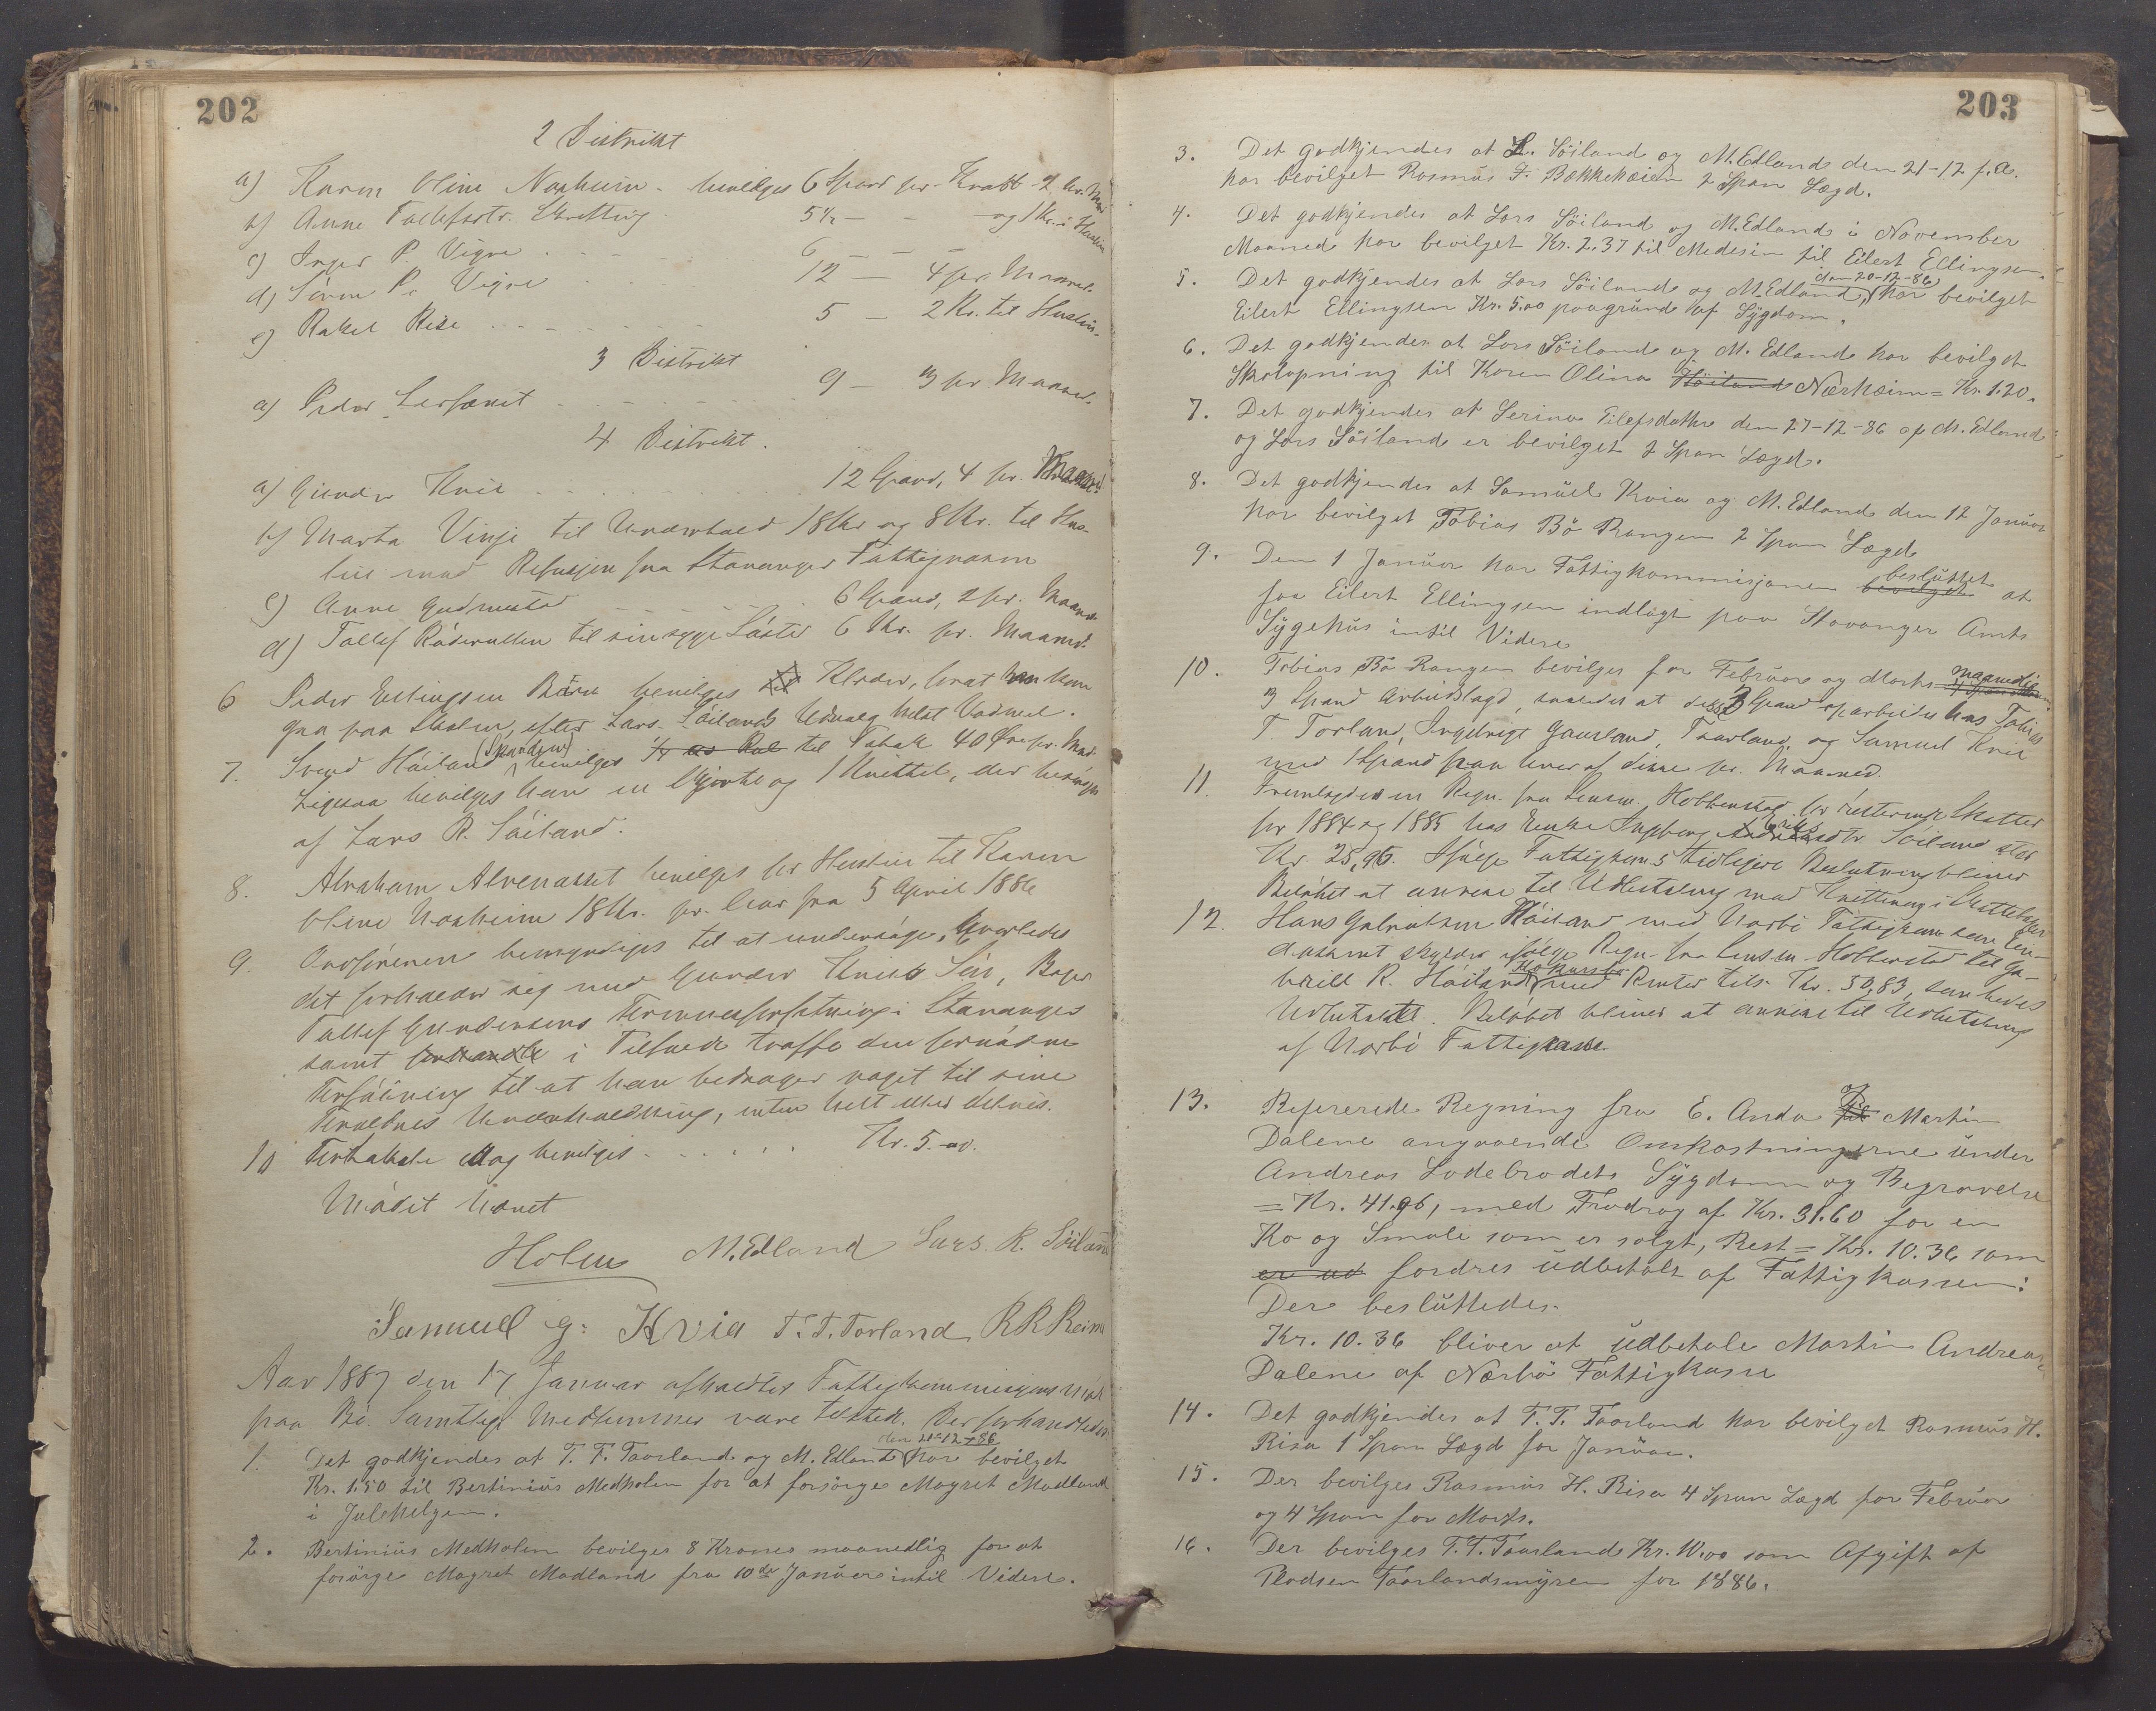 202
2 Distrikt
a) Karen Oline Nærheim - bevilges 6 Spand pr. Kvart - 2 kr. Md
b) Anne Tollefsdtr. Skretting 5½ — - og 1 Kr. i Husleie
c) Inger P. Vigre . . . 6 — — —
d) Sören P. Vigre . . . 12 — 4 pr. Maaned.
e) Rakel Rise . . . . 5 — 2 Kr. til Husleie.
3 Distrikt
a) Peder Lersævet . . . . 9 — 3 pr. Maaned.
4 Distrikt.
a) Gunder Kvie . . . . 12 Spand, 4 pr. Maaned.
b) Marta Vinje til Underhold 18 Kr og 8 Kr. til Hus-
leie med Refusjon fra Stavanger Fattigvæsen
c) Anne Gudmestad . . . . 6 Spand, 2 pr. Maaned
d) Tollef Röderullen til sin syge Söster 6 Kr. pr. Maaned.
6 Peder Ellingsen Böre bevilges til Klæder, hvat han kan
gaa paa Skolen, efter Lars Söilands Udvalg helst Vadmel.
7. Svend Höiland (Spanden) bevilges ½ til Tobak 40 Øre pr. Mnd.
Ligesaa bevilges han en Skjorte og 1 Knittel, der besörges
af Lars R. Söiland.
8. Abraham Alvenasset bevilges for Husleie til Karen
Oline Nærheim 18 Kr. pr. Aar fra 5 April 1886
9. Ordföreren bemyndiges til at undersöge, hvorledes
det forholder sig med Gunder Kvies Sön, Bager
Tollef Gundersens Formuesforfatning i Stavanger
samt forhandle i Tilfælde træffe den fornödne
Forföining til at han bedrager noget til sine
Forældres Underholdning, enten helt eller delvis.
10 Forhakste Dag bevilges . . . . . . Kr. 5.00.
Mödet hævet
Holm M. Edland Lars. R. Söiland
Samuel G: Kvia T. T. Torland R R Reime
Aar 1887 den 17 Januar afholdtes Fattigkommisjons Möde
paa Bö. Samtlige Medlemmer vare tilstede. Der forhandledes
den 20-12-86
1. Det godkjendes at T. T. Taarland og M. Edland har bevilget
Kr. 1.50 til Bertinius Medholen for at forsörge Magret Madland
i Julehelgen.
2. Bertinius Medholen bevilges 8 Kroner maanedlig for at
forsörge Magret Madland fra 10de Januar intil Videre.
203
3. Det godkjendes at L. Söiland og M. Edland den 21-12 f. A.
har bevilget Rasmus F. Bækkeheien 2 Span Lægd.
4. Det godkjendes at Lars Söiland og M. Edland i November
Maaned har bevilget Kr. 2.37 til Medesin til Eilert Ellingsen.
den 20-12-86
5. Det godkjendes at Lars Söiland og M. Edland, har bevilget
Eilert Ellingsen Kr. 5.00 paagrund af Sygdom.
6. Det godkjendes at Lars Söiland og M. Edland har bevilget
Skolopning til Karen Olina Höiland Nærheim = Kr. 1.20.
7. Det godkjendes at Serina Eilefsdatter den 27-12-86 af M. Edland
og Lars Söiland er bevilget 2 Span Lægd.
8. Det godkjendes at Samuel Kvia og M. Edland den 12 Januar
har bevilget Tobias Bö Rangen 2 Span Lægd
9. Den 1 Januar har Fattigkommisjonen bevilget besluttet at
faa Eilert Ellingsen indlagt paa Stavanger Amts
Sygehus intil Videre
10. Tobias Bö Rangen bevilges for Februar og Marts maanedlig
3 Spand Arbeidslægd, saaledes at disse 3 Spand oparbeides hos Tobias
T. Torland, Ingebrigt Gaurland, Taarland og Samuel Kvie
med 1 Spand paa hver af disse pr. Maaned.
11. Fremlagdes en Regn. fra Lensm. Hobberstad for resterende Skatter
for 1884 og 1885 hos Enke Ingeborg Eriksdtr. Söiland stor
Kr. 25,96. Ifölge Fattigkoms tidligere Beslutning bliver
Belöbet at anvise til Udbetaling med Kvittering i Skattebogen
12. Hans Gabrielsen Höiland med Nærbö Fattigkasse som Cau-
dusamt skylder ifölge Regn. fra Lensm. Hobberstad til Ga-
briel R. Höiland Höknesbø med Renter tils. Kr. 50,83, som kræves
Udbetalet. Belöbet bliver at anvise til Udbetaling
af Nærbö Fattigkasse
13. Refererede Regning fra E. Anda til Martin
Dalene angaaende Omkostningerne under
Andreas Lodebrodets Sygdom og Begravelse
= Kr. 41.96, med Fradrag af Kr. 31.60 for en
Ko og Smale som er solgt, Rest = Kr. 10.36 som
er ud fordres udbetalt af Fattigkassen:
Der besluttedes.
Kr. 10.36 bliver at udbetale Martin Andreas
Dalene af Nærbö Fattigkasse
14. Det godkjendes at T. T. Taarland har bevilget Rasmus H.
Risa 1 Span Lægd for Januar.
15. Der bevilges Rasmus H. Risa 4 Span Lægd for Februar
og 4 Span for Marts.
16. Der bevilges T. T. Taarland Kr. 10.00 som Afgift af
Pladsen Taarlandsmyren for 1886.